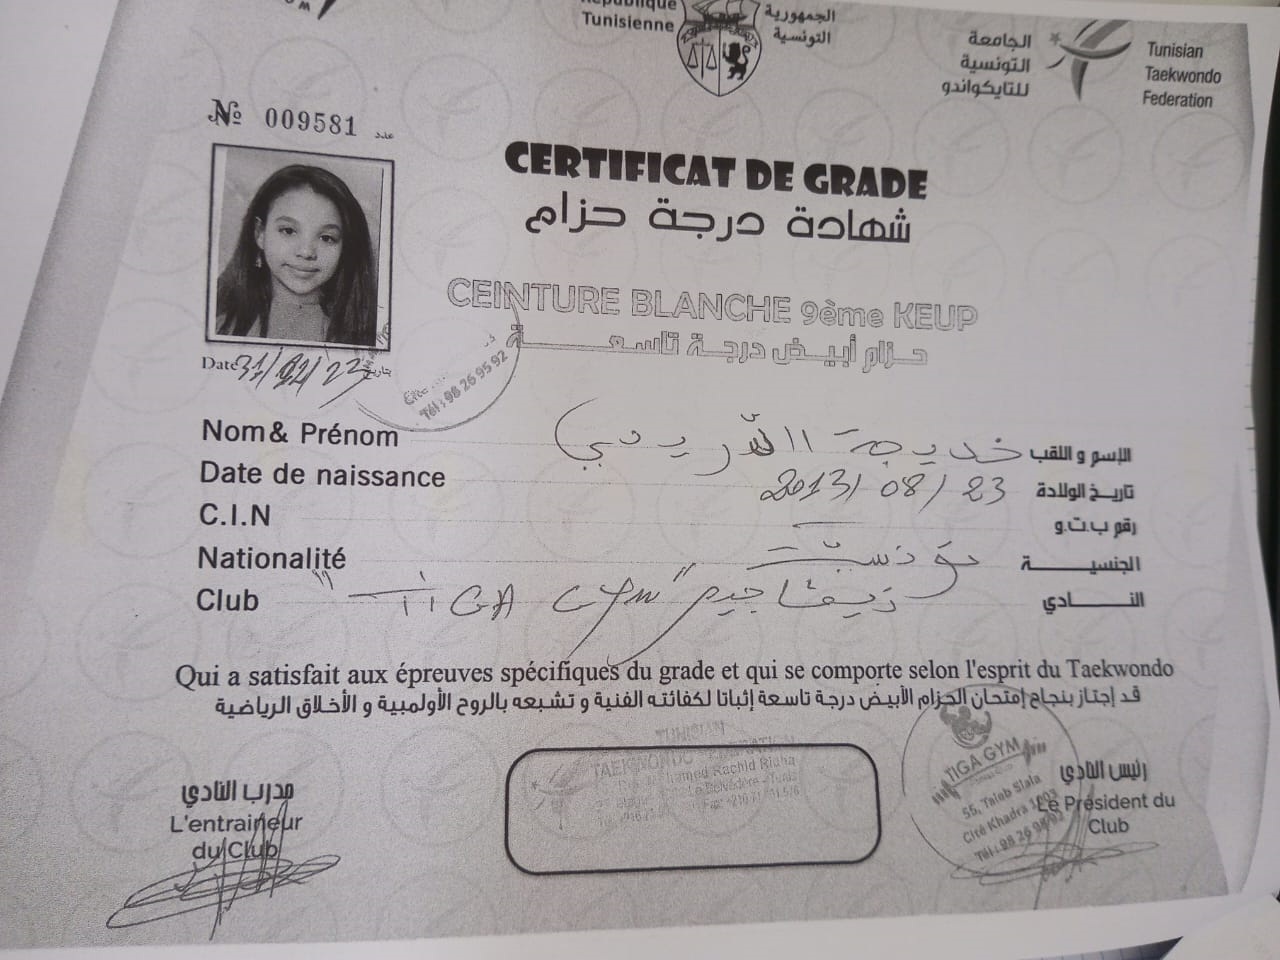 République
Tunisienne
الجمهورية
التونسية
الجامعة
التونسية
للتايكواندو
Tunisian
Taekwondo
Federation
№ 009581 عدد
CERTIFICAT DE GRADE
شهادة درجة حزام
CEINTURE BLANCHE 9ème KEUP
حزام أبيض درجة تاسعة
Date 31/12/23 بتاريخ
Tél : 98 26 95 92
Nom& Prénom خديجة الدريدي الإسم و اللقب
Date de naissance 2013/ 08 / 23 تاريخ الولادة
C.I.N رقم ب.ت.و
Nationalité تونسية الجنسية
Club "TiGA GYM" تيقا جيم النادي
Qui a satisfait aux épreuves spécifiques du grade et qui se comporte selon l'esprit du Taekwondo
قد إجتاز بنجاح إمتحان الحزام الأبيض درجة تاسعة إثباتا لكفائته الفنية و تشبعه بالروح الأولمبية و الأخلاق الرياضية
TUNISIAN
TAEKWONDO FEDERATION
مدرب النادي
L'entraineur
du Club
TIGA GYM
55, Taieb Slala
Cité Khadra 1003
Tél : 98 26 95 92
رئيس النادي
Le Président du
Club